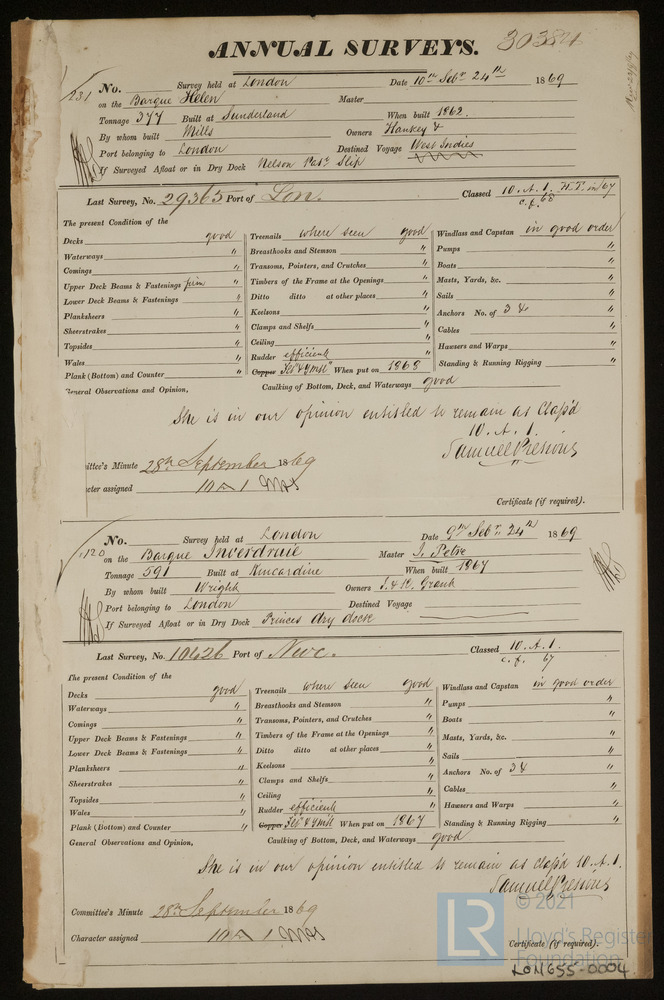 ANNUAL SURVEYS. 30384
231 No. Survey held at London Date 10th Sepr 24th 1869
on the Barque Helen Master
Tonnage 377 Built at Sunderland When built 1862.
By whom built Mills Owners Hankey &
Port belonging to London Destined Voyage West Indies
If Surveyed Afloat or in Dry Dock Nelson Pat. Slip
Last Survey, No. 29365 Port of Lon. Classed 10. A. 1.
c.f. 68
The present Condition of the
Decks good Treenails where seen good Windlass and Capstan in good order
Waterways " Breasthooks and Stemson " Pumps "
Comings " Transoms, Pointers, and Crutches " Boats "
Upper Deck Beams & Fastenings firm " Timbers of the Frame at the Openings " Masts, Yards, &c. "
Lower Deck Beams & Fastenings " Ditto ditto at other places " Sails "
Planksheers " Keelsons " Anchors No. of 3 & "
Sheerstrakes " Clamps and Shelfs " Cables "
Topsides " Ceiling " Hawsers and Warps "
Wales " Rudder efficient Standing & Running Rigging "
Plank (Bottom) and Counter " Copper Felt & Y mtl When put on 1868
General Observations and Opinion, Caulking of Bottom, Deck, and Waterways good
She is in our opinion entitled to remain as Class'd
10. A. 1.
Samuel Pretious
mittee's Minute 28th September 1869
cter assigned 10 A 1
Certificate (if required).
1120 No. Survey held at London Date 9th Sepr 24th 1869
on the Barque Inverdruie Master J. Petrie
Tonnage 591 Built at Kincardine When built 1867
By whom built Wright Owners J. & W. Grant
Port belonging to London Destined Voyage
If Surveyed Afloat or in Dry Dock Princes dry dock
Last Survey, No. 10626 Port of Newc. Classed 10. A. 1.
c.f. 67
The present Condition of the
Decks good Treenails where seen good Windlass and Capstan in good order
Waterways " Breasthooks and Stemson " Pumps "
Comings " Transoms, Pointers, and Crutches " Boats "
Upper Deck Beams & Fastenings " Timbers of the Frame at the Openings " Masts, Yards, &c. "
Lower Deck Beams & Fastenings " Ditto ditto at other places " Sails "
Planksheers " Keelsons " Anchors No. of 3 & "
Sheerstrakes " Clamps and Shelfs " Cables "
Topsides " Ceiling " Hawsers and Warps "
Wales " Rudder efficient Standing & Running Rigging "
Plank (Bottom) and Counter " Copper Felt & Y mtl When put on 1867
General Observations and Opinion, Caulking of Bottom, Deck, and Waterways good
She is in our opinion entitled to remain as class'd 10. A. 1.
Samuel Pretious
Committee's Minute 28th September 1869
Character assigned 10 A 1
Certificate (if required).
LR © 2021
Lloyd's Register
Foundation
LON655-0004